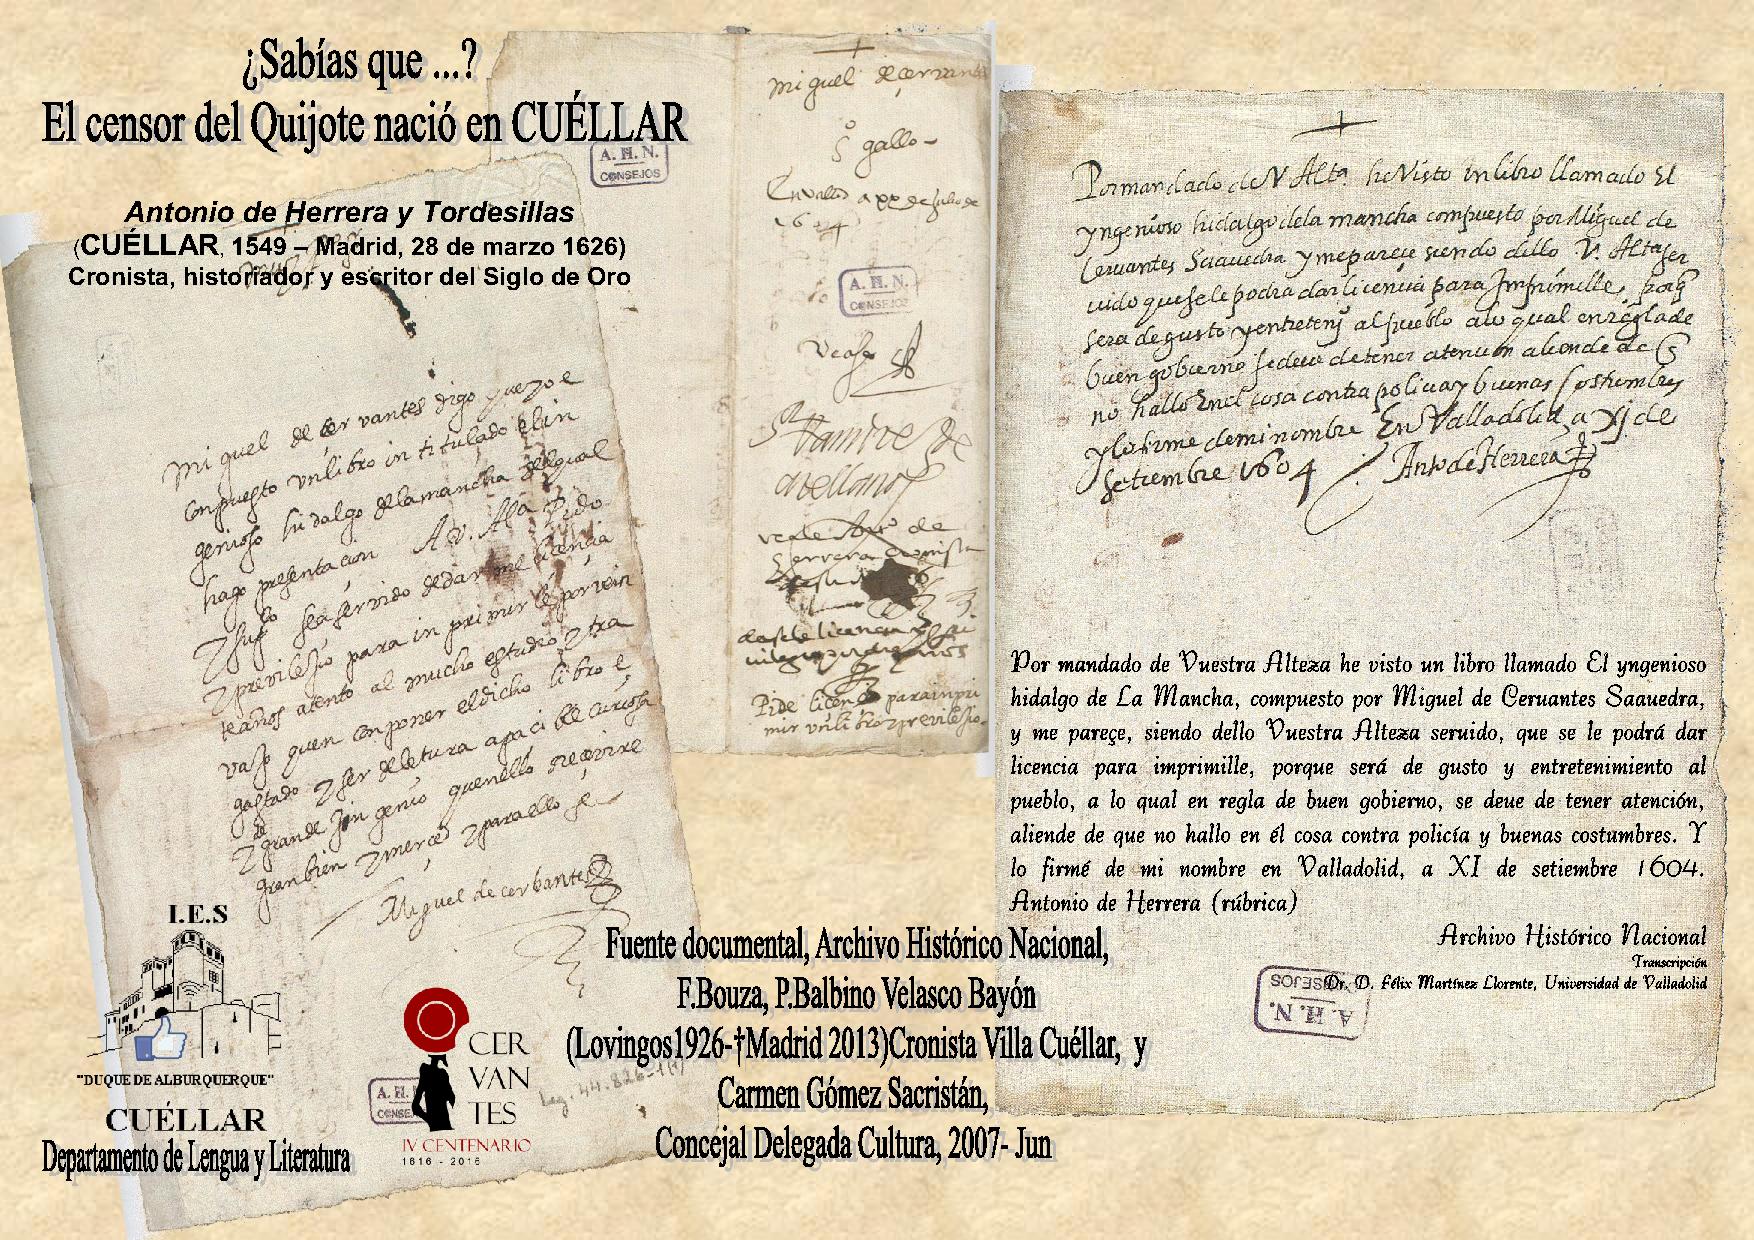 ¿Sabías que ...?
El censor del Quijote nació en CUÉLLAR
Antonio de Herrera y Tordesillas
(CUÉLLAR, 1549 – Madrid, 28 de marzo 1626)
Cronista, historiador y escritor del Siglo de Oro
A. H. N.
CONSEJOS
Miguel de cervantes digo que yo e
conpuesto un libro intitulado el in
genioso hidalgo de la mancha del qual
hago presentacion
sea servido de dar me licencia
previlesio para inprimir le por vein
te años atento al mucho estudio
que en conponer el dicho libro e
gastado y ser de letura apacible curiosa
y de grande
gran bien y merced y para ello
Miguel de cerbantes
miguel de cervantes
gallo
En Vallid a xx de Julio de
1604
A. H. N.
CONSEJOS
Ramirez de
arellano
Herrera cronista
dese le licencia
Pide licencia para inpri
mir un libro y previlesio
Por mandado de V Alta he Visto un libro llamado El
yngenioso hidalgo de la mancha compuesto por Miguel de
Cervantes Saavedra y me pareçe siendo dello V. Alta ser
vido que se le podra dar licencia para Imprimille, porq
sera de gusto y entretenimo al pueblo a lo qual en regla de
buen gobierno se deve de tener atencion aliende de q
no hallo en el cosa contra policia y buenas Costumbres
y lo firme de mi nombre En Valladolid a XI de
Setiembre 1604 Anto de Herrera
Por mandado de Vuestra Alteza he visto un libro llamado El yngenioso
hidalgo de La Mancha, compuesto por Miguel de Ceruantes Saauedra,
y me pareçe, siendo dello Vuestra Alteza seruido, que se le podrá dar
licencia para imprimille, porque será de gusto y entretenimiento al
pueblo, a lo qual en regla de buen gobierno, se deue de tener atención,
aliende de que no hallo en él cosa contra policía y buenas costumbres. Y
lo firmé de mi nombre en Valladolid, a XI de setiembre 1604.
Antonio de Herrera (rúbrica)
Archivo Histórico Nacional
Transcripción
Dr. D. Félix Martínez Llorente, Universidad de Valladolid
A. H. N.
CONSEJOS
Fuente documental, Archivo Histórico Nacional,
F.Bouza, P.Balbino Velasco Bayón
(Lovingos1926-†Madrid 2013)Cronista Villa Cuéllar, y
Carmen Gómez Sacristán,
Concejal Delegada Cultura, 2007- Jun
I.E.S
"DUQUE DE ALBURQUERQUE"
CUÉLLAR
Departamento de Lengua y Literatura
A. H.
CONSE
CER
VAN
TES
IV CENTENARIO
1616 - 2016
Leg. 44.826-1(1)